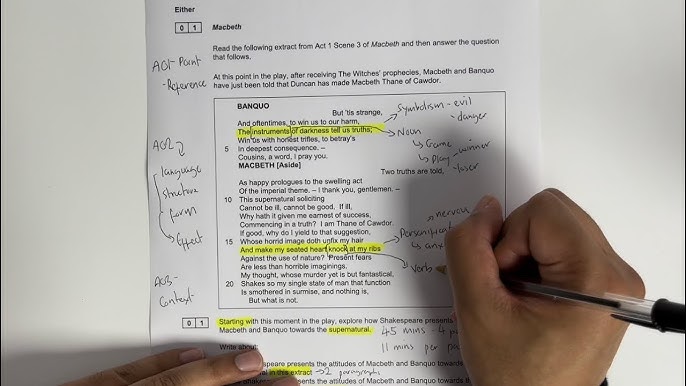 Either
0 1 Macbeth
Read the following extract from Act 1 Scene 3 of Macbeth and then answer the question
that follows.
At this point in the play, after receiving The Witches' prophecies, Macbeth and Banquo
have just been told that Duncan has made Macbeth Thane of Cawdor.
AO1- Point
-Reference
AO2
language
structure
form
Effect
AO3-
Context-
BANQUO
But 'tis strange,
And oftentimes, to win us to our harm,
The instruments of darkness tell us truths;
Win us with honest trifles, to betray's
5 In deepest consequence. –
Cousins, a word, I pray you.
MACBETH [Aside]
Two truths are told,
As happy prologues to the swelling act
Of the imperial theme. – I thank you, gentlemen. –
10 This supernatural soliciting
Cannot be ill, cannot be good. If ill,
Why hath it given me earnest of success,
Commencing in a truth? I am Thane of Cawdor.
If good, why do I yield to that suggestion,
15 Whose horrid image doth unfix my hair
And make my seated heart knock at my ribs
Against the use of nature? Present fears
Are less than horrible imaginings,
My thought, whose murder yet is but fantastical,
20 Shakes so my single state of man that function
Is smothered in surmise, and nothing is,
But what is not.
Symbolism - evil
- danger
Noun
Game
play - winner
- loser
nervous
Verb
0 1 Starting with this moment in the play, explore how Shakespeare presents
Macbeth and Banquo towards the supernatural.
45 mins - 4
11 mins per
Write about:
presents the attitudes of Macbeth and Banquo towards
in this extract → 2 paragraphs
presents the attitudes of Macbeth and Banquo towards